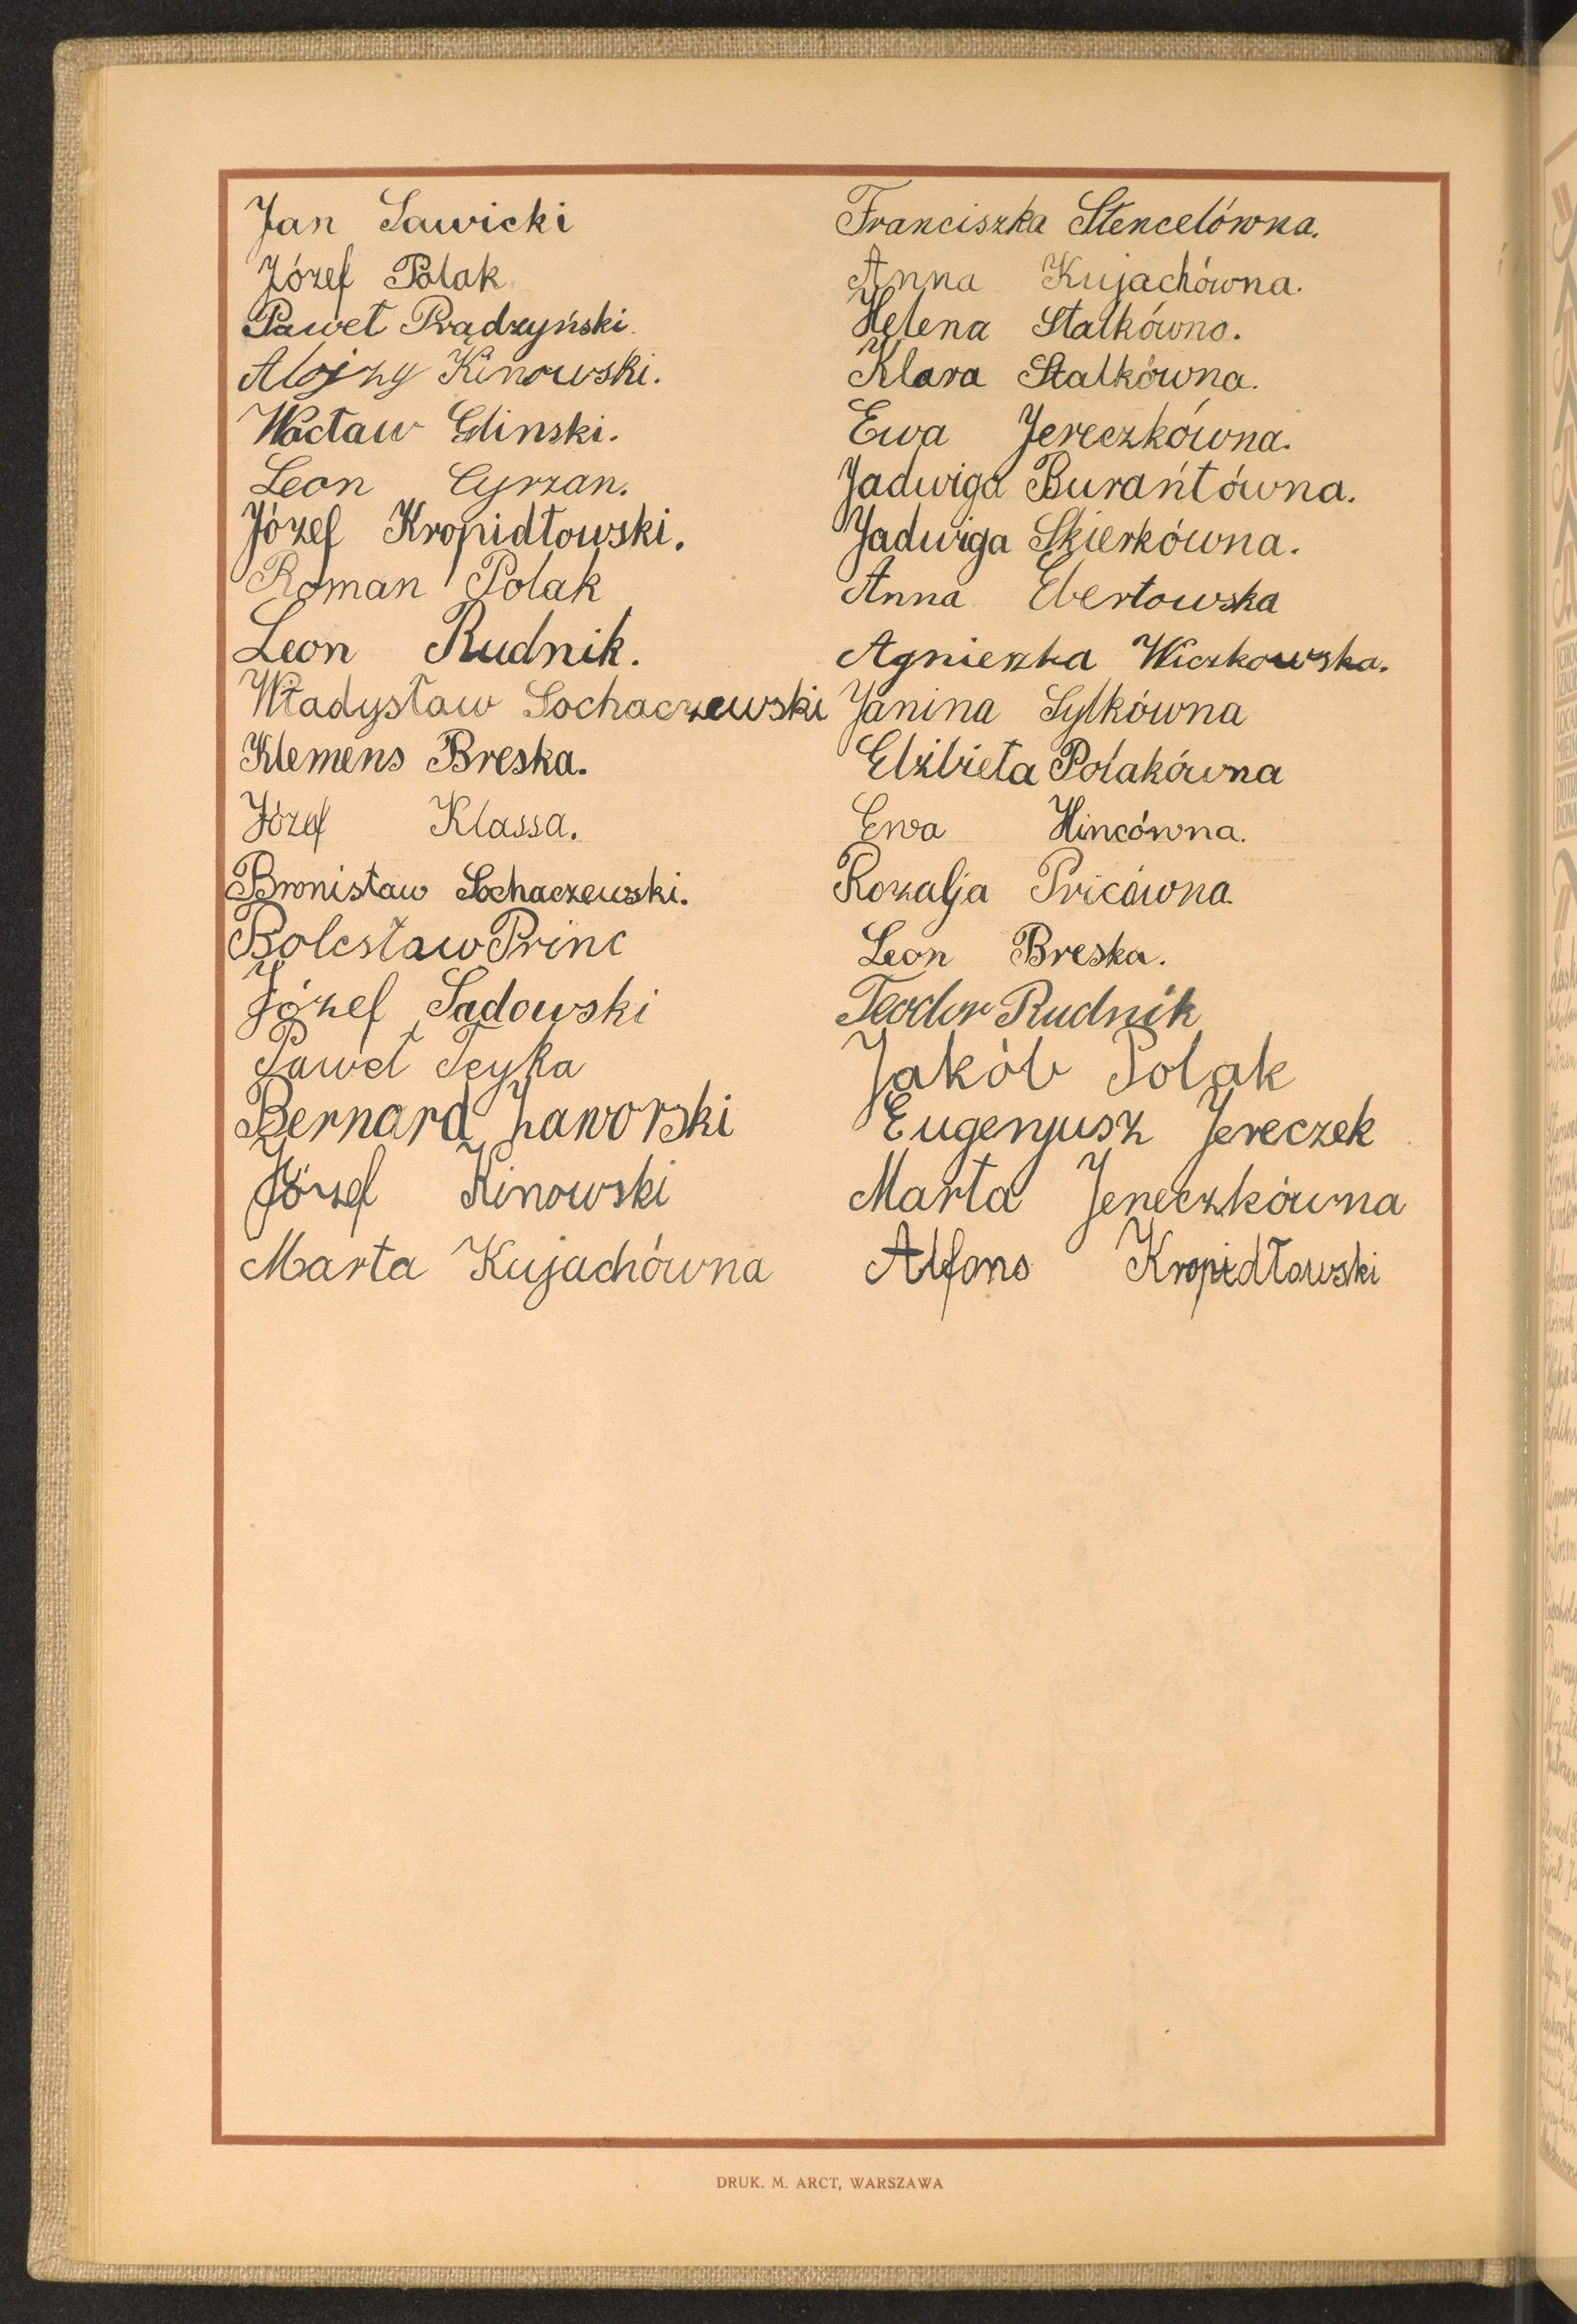 Jan Sawicki
Józef Polak
Paweł Prądzyński.
Alojzy Kinowski.
Wacław Glinski.
Leon Cyrzan.
Józef Kropidłowski.
Roman Polak
Leon Rudnik.
Władysław Sochaczewski
Klemens Breska.
Józef Klassa.
Bronisław Sochaczewski.
Bolesław Princ
Józef Sadowski
Paweł Teyka
Bernard Jaworski
Józef Kinowski
Marta Kujachówna
Franciszka Stencelówna.
Anna Kujachówna.
Helena Stalkówna.
Klara Stalkówna.
Ewa Jereczkówna.
Jadwiga Burańtówna.
Jadwiga Skierkówna.
Anna Ebertowska
Agnieszka Wiczkowska.
Janina Sylkówna
Elżbieta Polakówna
Ewa Hincówna.
Rozalja Pricówna.
Leon Breska.
Teodor Rudnik
Jakób Polak
Eugenjusz Jereczek
Marta Jereczkówna
Alfons Kropidłowski
DRUK. M. ARCT, WARSZAWA